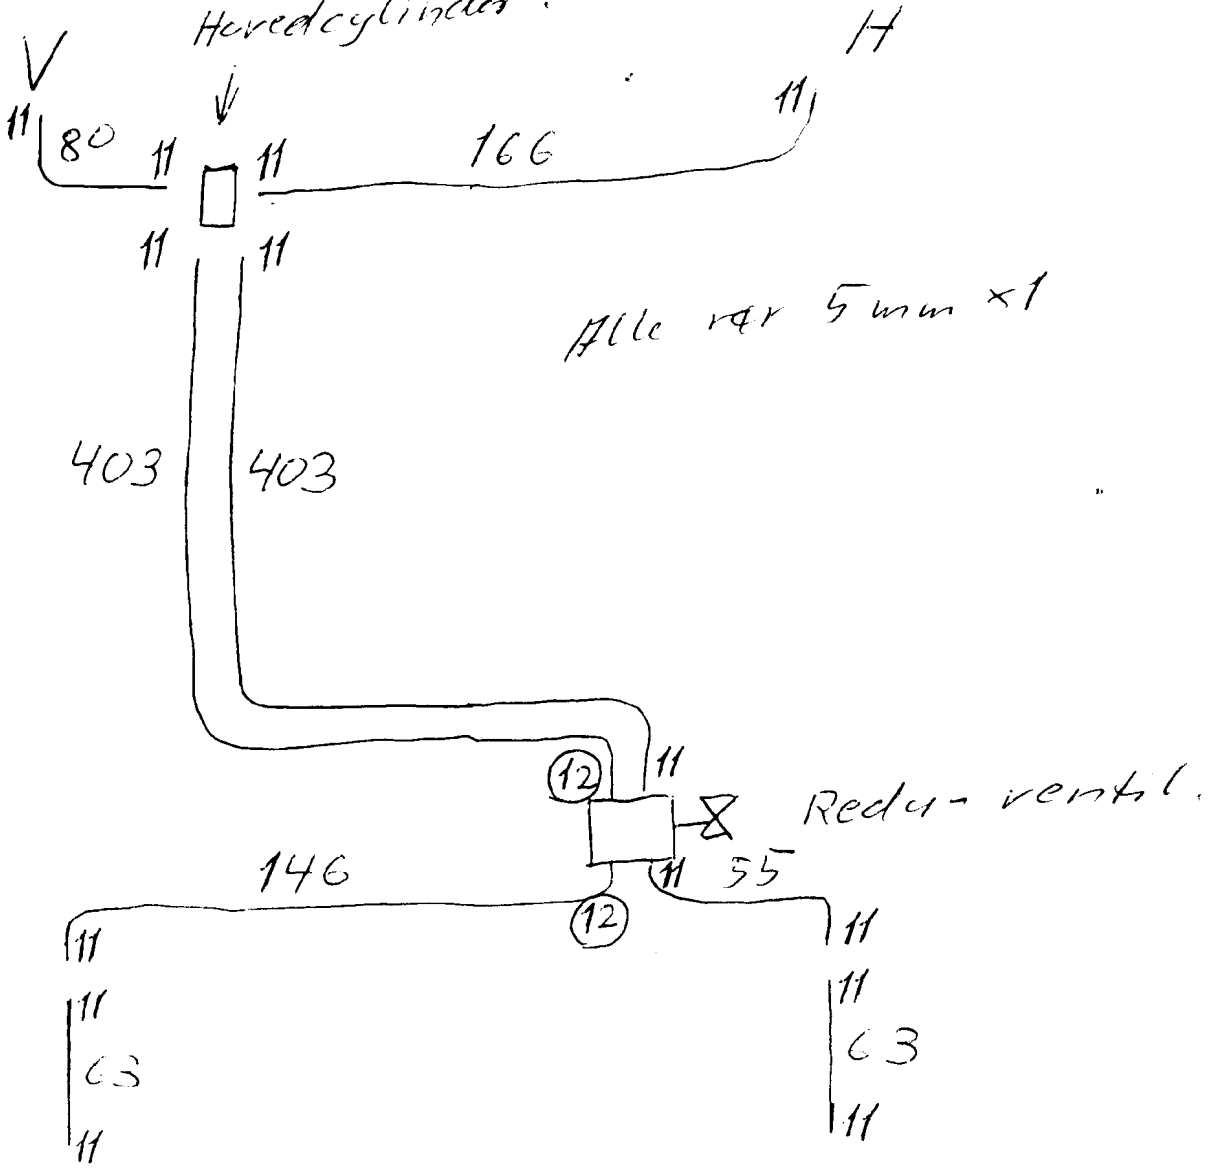 Hovedcylinder.
V
H
11
80
11
11
166
11
11
11
Alle rør 5mm x1
403
403
12
11
Redu-ventil.
146
11
55
12
11
11
11
11
63
63
11
11